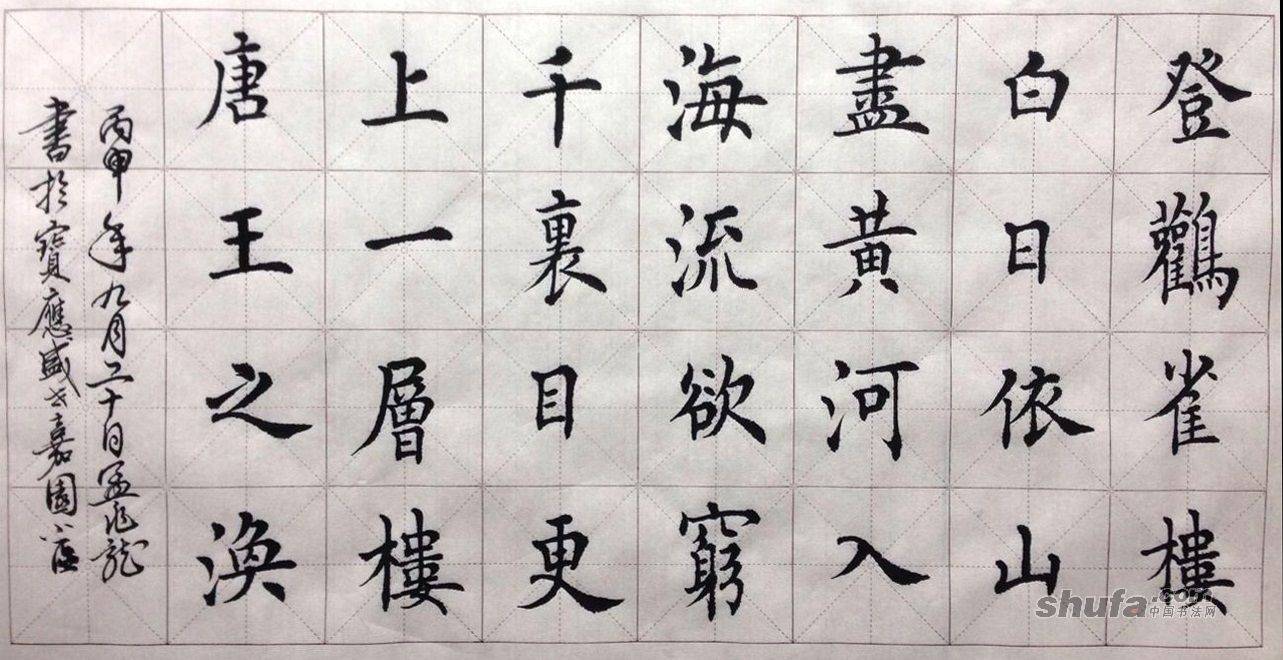 登鸛雀樓
白日依山
盡黃河入
海流欲窮
千裏目更
上一層樓
唐王之渙
丙申年九月二十日孟兆龍
書於寶應盛世嘉園小區
shufa.com
中国书法网